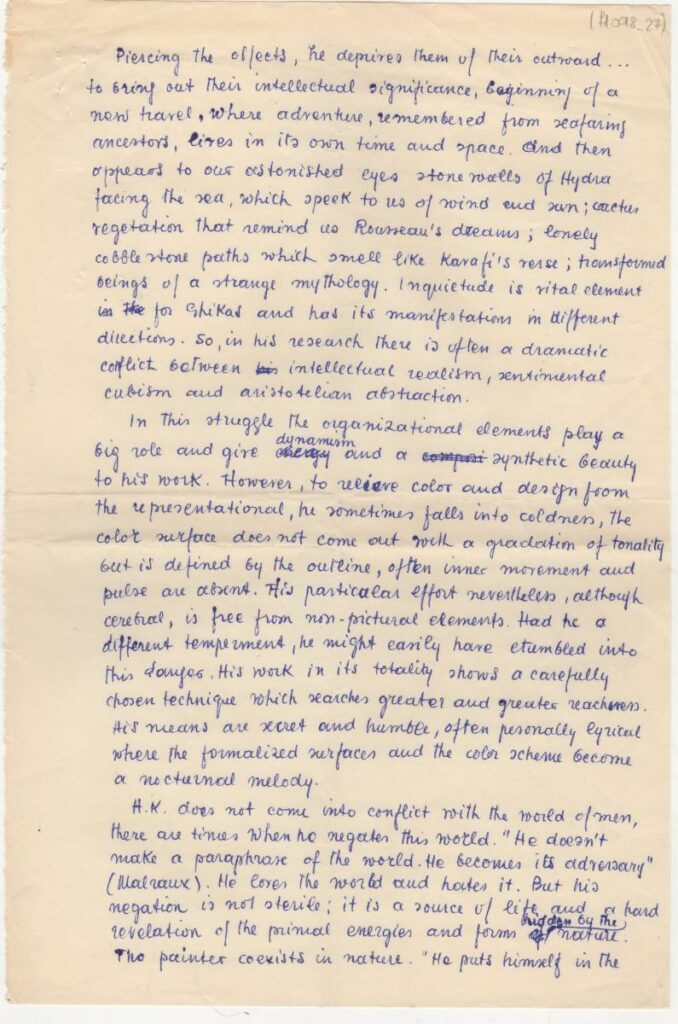 (f1098_27)
Piercing the objects, he deprives them of their outward...
to bring out their intellectual significance, beginning of a
new travel, where adventure, remembered from seafaring
ancestors, lives in its own time and space. And then
appears to our astonished eyes stone walls of Hydra
facing the sea, which speek to us of wind and sun; cactus
vegetation that remind us Rousseau's dreams; lonely
cobble stone paths which smell like Kavafi's verse; transformed
beings of a strange mythology. Inquietude is vital element
in the for Ghikas and has its manifestations in different
directions. So, in his research there is often a dramatic
conflict between his intellectual realism, sentimental
cubism and aristotelian abstraction.
In this struggle the organizational elements play a
dynamism
big role and give energy and a composi synthetic beauty
to his work. However, to relieve color and design from
the representational, he sometimes falls into coldness, the
color surface does not come out with a gradation of tonality
but is defined by the outline, often inner movement and
pulse are absent. His particular effort nevertheless, although
cerebral, is free from non-pictural elements. Had he a
different temperment, he might easily have stumbled into
this danger. His work in its totality shows a carefully
chosen technique which searches greater and greater
His means are secret and humble, often pesonally lyrical
where the formalized surfaces and the color scheme become
a nocturnal melody.
H.K. does not come into conflict with the world of men,
there are times when he negates this world. "He doesn't
make a paraphrase of the world. He becomes its adversary"
(Malraux). He loves the world and hates it. But his
negation is not sterile; it is a source of life and a hard
hidden by the
revelation of the primal energies and forms of nature.
The painter coexists in nature. "He puts himself in the